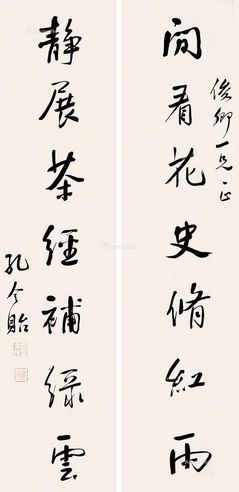 俊卿一兄一正
閒看花史脩紅雨
静展茶經補緑雲
孔令貽